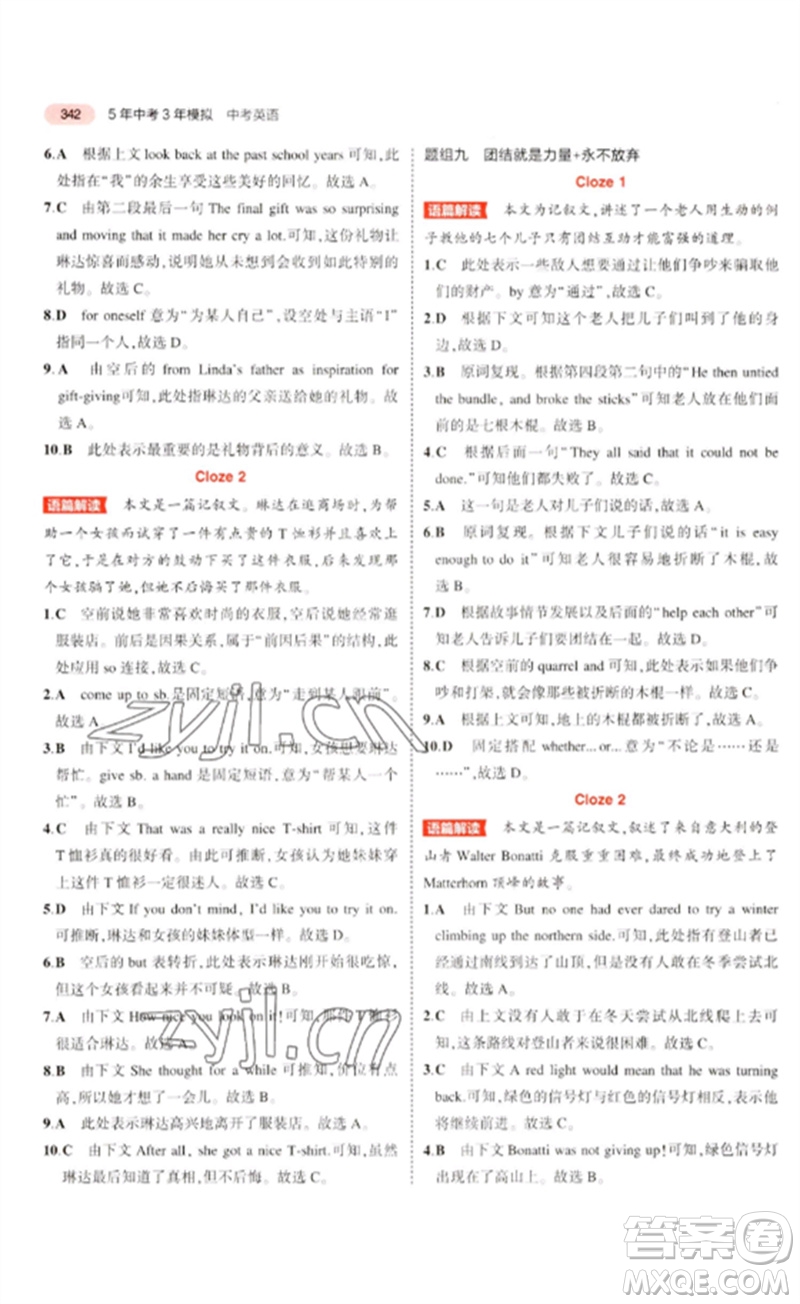 342 5年中考3年模拟 中考英语
6.A 根据上文 look back at the past school years 可知，此
处指在“我”的余生享受这些美好的回忆。故选 A。
7.C 由第二段最后一句 The final gift was so surprising
and moving that it made her cry a lot.可知，这份礼物让
琳达惊喜而感动，说明她从未想到会收到如此特别的
礼物。故选 C。
8.D for oneself 意为“为某人自己”，设空处与主语“I”
指同一个人，故选 D。
9.A 由空后的 from Linda's father as inspiration for
gift-giving可知，此处指琳达的父亲送给她的礼物。故
选 A。
10.B 此处表示最重要的是礼物背后的意义。故选 B。
Cloze 2
语篇解读 本文是一篇记叙文。琳达在逛商场时，为帮
助一个女孩而试穿了一件有点贵的 T 恤衫并喜欢上
了它，于是在对方的鼓动下买了这件衣服。虽然那
个女孩骗了她，但她不后悔买了它。
1.C 空前说她非常喜欢时尚的衣服，空后说她经常逛
服装店。前后是因果关系，属于“前因后果”的结构，故
此处应用 so 连接，故选 C。
2.A come up to sb.是固定短语，意为“走到某人跟前”。
故选 A。
3.B 由下文 I'd like you to try it on.可知，女孩想要琳达
帮忙。give sb. a hand 是固定短语，意为“帮某人一个
忙”。故选 B。
4.C 由下文 That was a really nice T-shirt 可知，这件
T 恤衫真的很好看。可推断，女孩认为她妹妹穿
上这件 T 恤衫会很好看。故选 C。
5.D 由下文 If you don't mind, I'd like you to try it on.
可推断，琳达和女孩的妹妹体型一样。故选 D。
6.B 空后的 but 表转折，此处指琳达刚开始很吃惊，
但这个女孩看起来并不可疑。故选 B。
7.A 由下文 How nice you look on it!可知，这件 T 恤衫
很适合琳达。故选 A。
8.B 由下文 She thought for a while 可推知，价位有点
高，所以她才想了一会儿。故选 B。
9.A 此处表示琳达高兴地离开了服装店。故选 A。
10.C 由下文 After all, she got a nice T-shirt.可知，虽然
琳达最后知道了真相，但并不后悔。故选 C。
题组九 团结就是力量+永不放弃
Cloze 1
语篇解读 本文为记叙文，讲述了一个老人用生动的例
子教他的七个儿子只有团结互助才能富强的道理。
1.C 此处表示一些敌人想通过让他们争吵来骗取他
们的财产。by 意为“通过”，故选 C。
2.D 根据下文可知这个老人把儿子们叫到了他的
大厅里，故选 D。
3.B 原词复现。根据第四段第二句中的“He then untied
the bundle, and broke the sticks”可知老人放在他们面
前的是七根木棍。故选 B。
4.C 根据后面一句“They all said that it could not be
done.”可知他们都失败了。故选 C。
5.A 这一句是老人对儿子们说的话，故选 A。
6.B 原词复现。根据下文儿子们说的话“it is easy
enough to do it”可知老人很容易地折断了木棍，
故选 B。
7.D 根据故事情节发展以及后面的“help each other”可
知老人告诉儿子们要团结在一起。故选 D。
8.C 根据空前的 quarrel and 可知，此处表示他们会争
吵和打架，就像这些容易被折断的木棍一样。故选 C。
9.A 根据上文可知，地上的木棍都被折断了，故选 A。
10.D 固定搭配 whether...or...意为“不论是……还是
……”，故选 D。
Cloze 2
语篇解读 本文是一篇记叙文，叙述了来自意大利的登
山者 Walter Bonatti 克服重重困难，最终成功地登上了
Matterhorn 顶峰的故事。
1.A 由下文 But no one had ever dared to try a winter
climbing up the northern side.可知，此处指有登山者从
其他路线已经到达了山顶，但没有人尝试在冬季尝试北
线。故选 A。
2.C 由上文没有人敢于在冬天尝试从北线爬上去可
知，这条路线对登山者来说很困难。故选 C。
3.C 由下文 A red light would mean that he was turning
back.可知，绿色的信号灯与红色的信号灯相反，表示他
将继续前进。故选 C。
4.B 由下文 Bonatti was not giving up!可知，绿色信号灯
出现在了高山上。故选 B。
zyjl.cn
zyjl.cn
答案圈
MXQE.COM